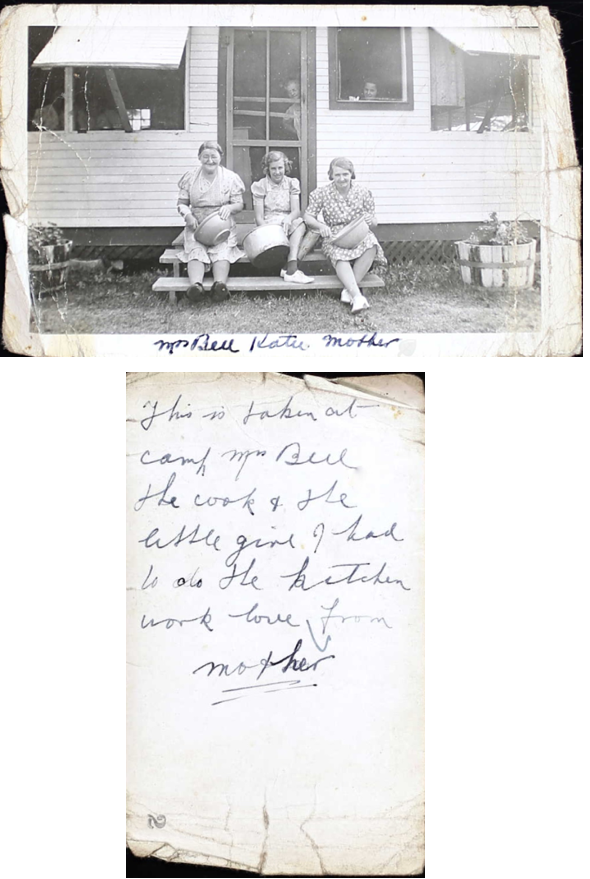 Mrs Bell Katie Mother
This is taken at
camp Mrs Bell
the cook & the
little girl I had
to do the kitchen
work love from
mother